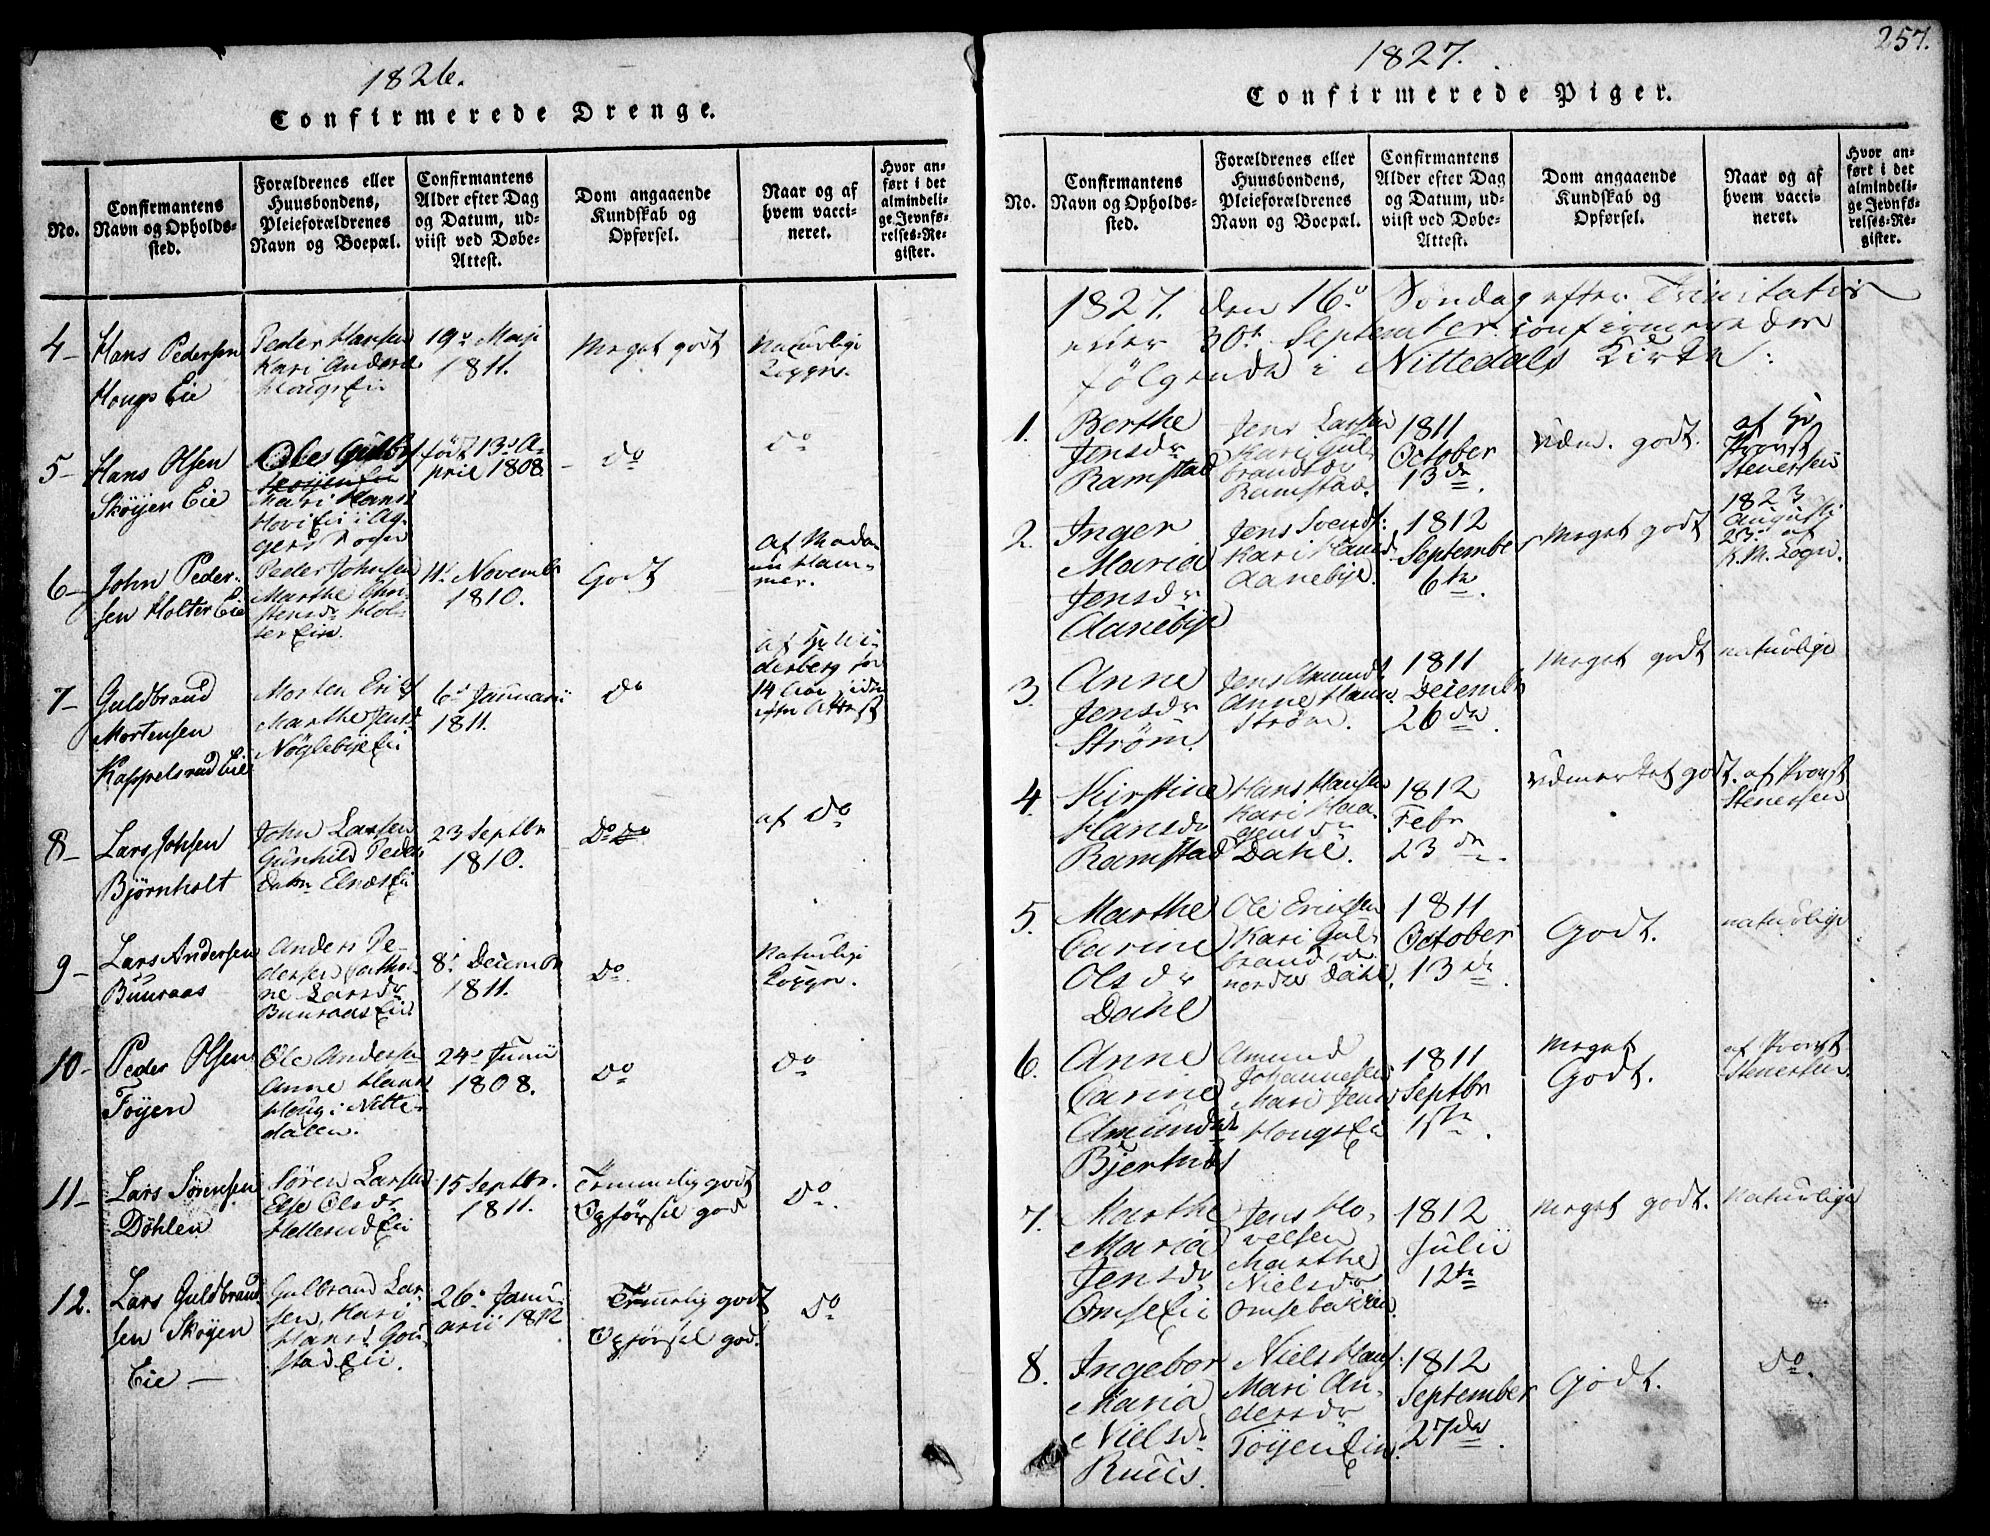 1826.
Confirmerede Drenge.
No.
Confirmantens
Navn og Opholds-
sted.
Forældrenes eller
Huusbondens,
Pleieforældrenes
Navn og Boepæl.
Confirmantens
Alder efter Dag
og Datum, ud-
viist ved Døbe-
Attest.
Dom angaaende
Kundskab og
Opførsel.
Naar og af
hvem vacci-
neret.
Hvor an-
ført i det
almindeli-
ge Jevnfø-
relses-Re-
gister.
4-
Hans Pedersen
Hougs Eie
Peder Hansen
Kari Andersd
Hougs Eie
19de Maji
1811.
Meget godt
Naturlige
Kopper.
5-
Hans Olsen
Skøyen Eie
Ole Gulbr
Skøyen Eie
Mari Hansd
Hovi Eie i Ag-
gers Sogn
født 13de A-
pril 1808.
Do
Do
6-
John Peder-
sen Holter Eie
Peder Johnsen
Marthe Chri-
stensdr Hol-
ter Eie.
11te Novembr
1810.
Godt
af Mada-
m Ham-
mer.
7-
Guldbrand
Mortensen
Kappelsrud Eie
Morten Erics
Marthe Jensd
Nøglebye Eie
6te Januarii
1811.
Do
14 Aar siden
efter Attest
8-
Lars Johsen
Bjørnholt
John Larsen
Gunhild Peders
Datr Elnæs Eie
23 Septbr
1810.
Do do
af Do
9-
Lars Andersen
Buuraas
Anders Pe-
dersen Cathri-
ne Larsdr
Buuraas Eie
8de Decembr
1811.
Do.
Naturlige
Kopper.
10-
Peder Olsen
Tøyen
Ole Anderse
Anne Hansd
Houg i Nitte-
dalen.
24de Junii
1808.
Do
Do
11-
Lars Sørensen
Døhlen
Søren Larsen
Else Olsdr
Hellerud Eie
15 Septbr.
1811.
Temmelig godt
Opførsel god
Do.
12.
Lars Guldbrand-
sen Skøyen
Eie -
Gulbrand Lar-
sen, Kari
Hansd. Gou-
stad Eie.
26de Janu-
arii 1812
Temmelig godt
Opførsel god.
Do
257.
1827.
Confirmerede Piger.
No.
Confirmantens
Navn og Opholds-
sted.
Forældrenes eller
Huusbondens,
Pleieforældrenes
Navn og Boepæl.
Confirmantens
Alder efter Dag
og Datum, ud-
viist ved Døbe-
Attest.
Dom angaaende
Kundskab og
Opførsel.
Naar og af
hvem vacci-
neret.
Hvor an-
ført i det
almindeli-
ge Jevnfø-
relses-Re-
gister.
1827. den 16de Søndag efter Trinitatis
eller 30te September confirmerede
følgende i Nittedals Kirke:
1.
Berthe
Jensdr
Ramstad
Jens Larsen
Kari Gul-
brandsdr
Ramstad.
1811
October
13de.
Udm. godt.
af Hr
Provst
Stenersen
2.
Inger
Maria
Jensdr
Aanebye
Jens Svends:
Kari Hansd
Aanebye.
1812
September
6te.
Meget godt
1823
Augusti
23de af
K. M. Sogn.
3.
Anne
Jensdr
Strøm.
Jens Amunds
Anne Hansd.
Strøm.
1811
Decembr
26de.
Meget godt
naturlige
4.
Kirstine
Hansdr
Ramstad
Hans Hansen
Kari Haa-
gensdr
Dahl.
1812
Febr
23de.
Udmerket godt.
af Provst
Stenersen
5.
Marthe
Carine
Olsdr
Dahl
Ole Ericksen
Kari Gul-
brandsdr
nordre Dahl.
1811
October
13de.
Godt.
naturlige
6.
Anne
Carine
Amundsdr
Bjertnes
Amund
Johannesen
Mari Jensd
Hougs Eie
1811
Septbr
1ste.
Meget
Godt.
af Provst
Stenersen
7.
Marthe
Maria
Jensdr
Omse Eie
Jens Ho-
velsen
Marthe
Nielsdr
Omsebakken.
1812
Julii
12te
Meget godt.
Naturlige
8.
Ingebor
Maria
Nielsdr
Ruus.
Niels Hans:
Mari An-
dersdr
Tøyen Eie.
1812
September
27de.
Godt.
Do.